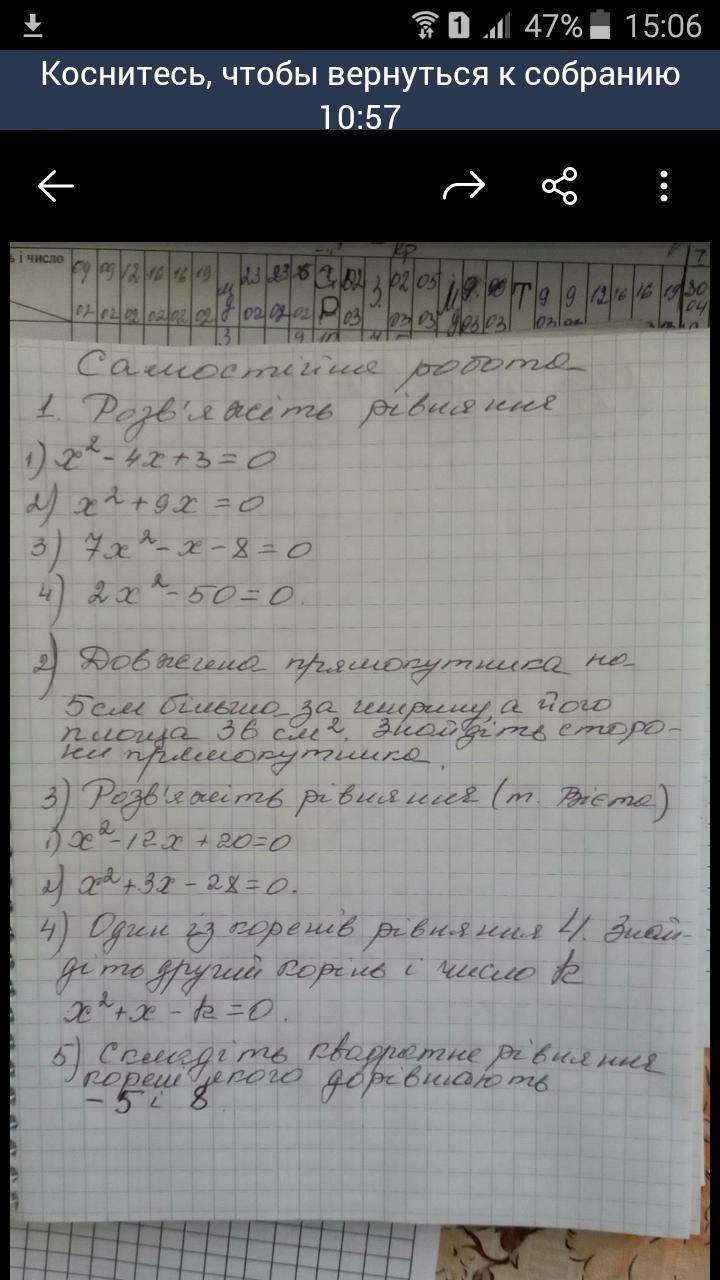 47% 15:06
Коснитесь, чтобы вернуться к собранию
10:57
ь і число
Самостійна робота
1. Розв'яжіть рівняння
1) x² - 4x + 3 = 0
2) x² + 9x = 0
3) 7x² - x - 8 = 0
4) 2x² - 50 = 0.
2) Довжина прямокутника на
5см більша за ширину, а його
площа 36 см². Знайдіть сторо-
ни прямокутника.
3) Розв'яжіть рівняння (т. Вієта)
1) x² - 12x + 20 = 0
2) x² + 3x - 28 = 0.
4) Один із коренів рівняння 4. Знай-
діть другий корінь і число k
x² + x - k = 0.
5) Складіть квадратне рівняння
корені якого дорівнюють
- 5 і 8